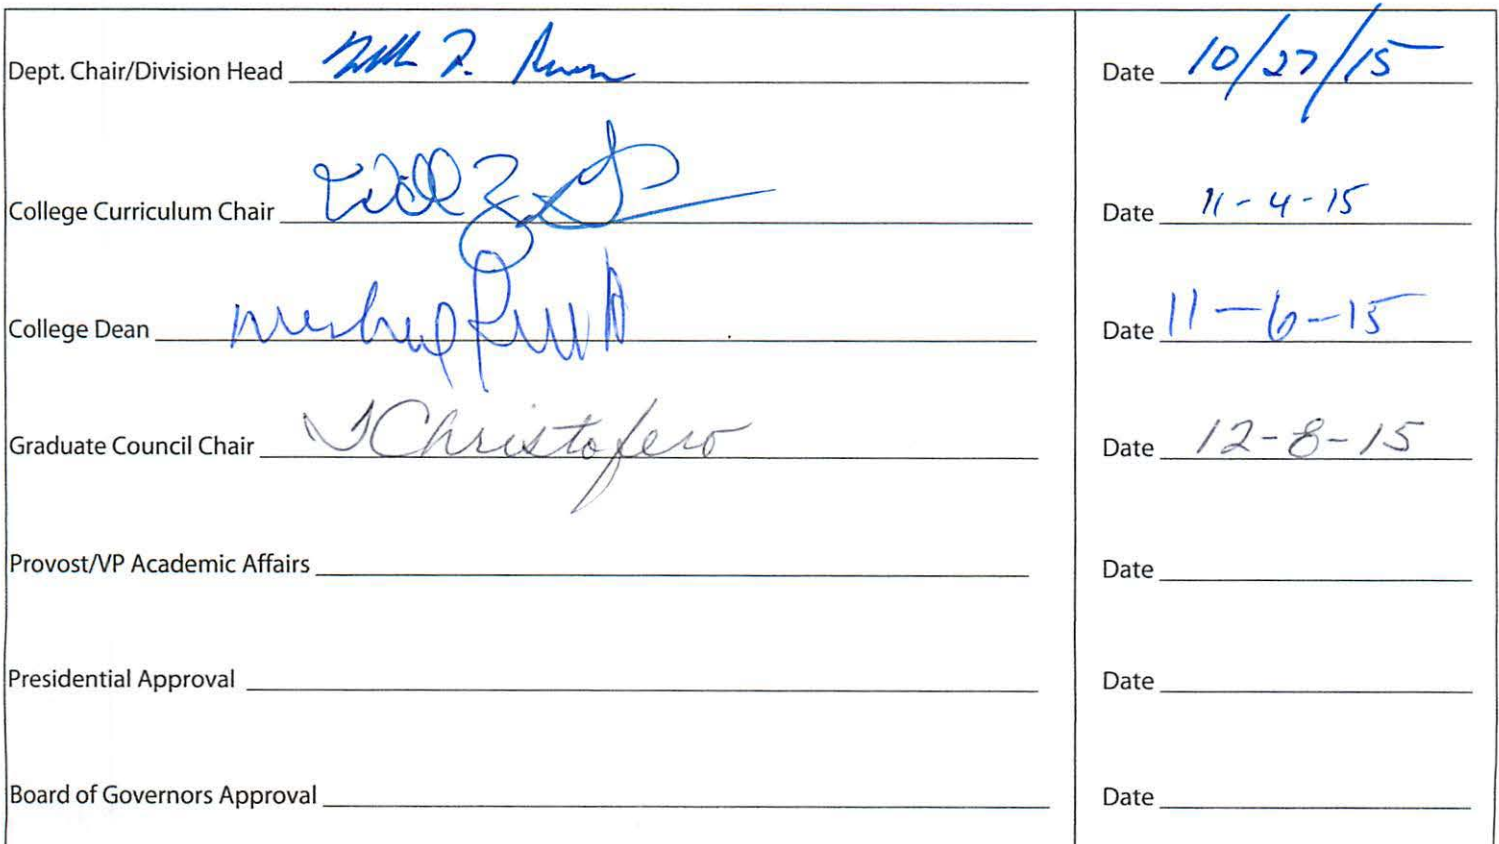 Dept. Chair/Division Head Date 10/27/15
College Curriculum Chair Date 11-4-15
College Dean Date 11-6-15
Graduate Council Chair TChristofero Date 12-8-15
Provost/VP Academic Affairs Date
Presidential Approval Date
Board of Governors Approval Date